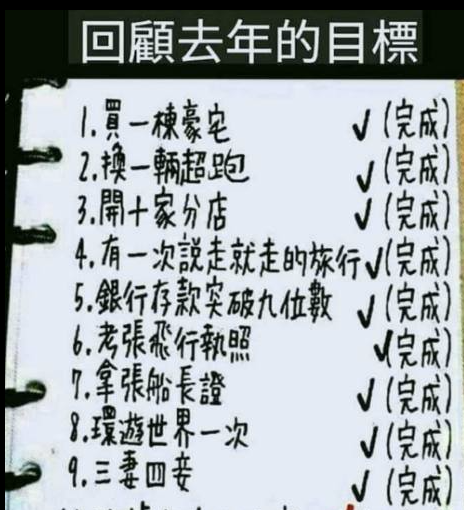 回顧去年的目標
1.買一棟豪宅 ✓(完成)
2.換一輛超跑 ✓(完成)
3.開十家分店 ✓(完成)
4.有一次說走就走的旅行 ✓(完成)
5.銀行存款突破九位數 ✓(完成)
6.考張飛行執照 ✓(完成)
7.拿張船長證 ✓(完成)
8.環遊世界一次 ✓(完成)
9.三妻四妾 ✓(完成)